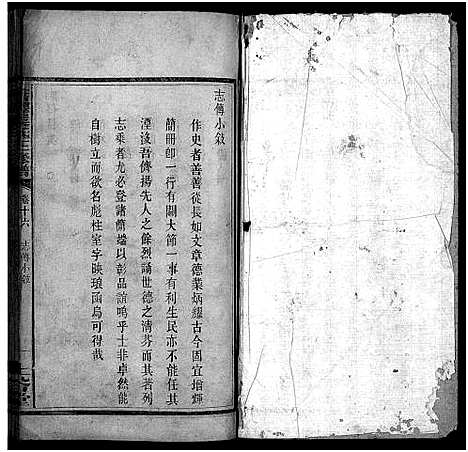 志傳小敘
作史者善善從長如文章德業炳耀古今固宜增輝
簡冊即一行有關大節一事有利生民亦不能任其
湮沒吾儕揚先人之餘烈誦世德之清芬而其著列
志乘者尤必登諸簡端以彰品誼嗚乎士非卓然能
自樹立而欲名彪柱室字映琅函烏可得哉
卷十六
志傳小敘